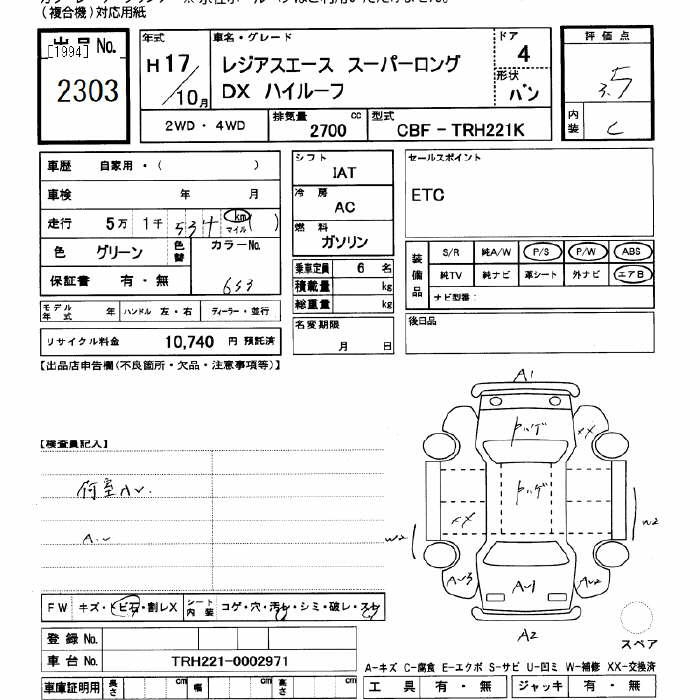 (複合機)対応用紙
出品 No.
[1994]
2303
年式
H 17/10月
車名・グレード
レジアスエース スーパーロング
DX ハイルーフ
ドア
4
形状
バン
評価点
3.5
内装
C
2WD・4WD
排気量 2700 cc
型式 CBF-TRH221K
車歴 自家用・( )
車検 年 月
走行 5万 1千 534 km マイル ( )
色 グリーン 色替 カラーNo.
653
保証書 有・無
モデル年式 年 ハンドル 左・右 ディーラー・並行
リサイクル料金 10,740 円 預託済
シフト
IAT
冷房
AC
燃料
ガソリン
乗車定員 6 名
積載量 kg
総重量 kg
名変期限
月 日
セールスポイント
ETC
装備品
S/R 純A/W P/S P/W ABS
純TV 純ナビ 革シート 外ナビ エアB
ナビ型番:
後日品
【出品店申告欄(不良箇所・欠品・注意事項等)】
【検査員記入】
荷室AU.
A.U
A1
XX
W2
W2
A1
A2
A2
スペア
FW キズ・トビ石・割レX シート内装 コゲ・穴・汚レ・シミ・破レ・スレ
登録 No.
車台 No. TRH221-0002971
車庫証明用 長さ cm 幅 cm 高さ cm
A-キズ C-腐食 E-エクボ S-サビ U-凹ミ W-補修 XX-交換済
工具 有・無 ジャッキ 有・無